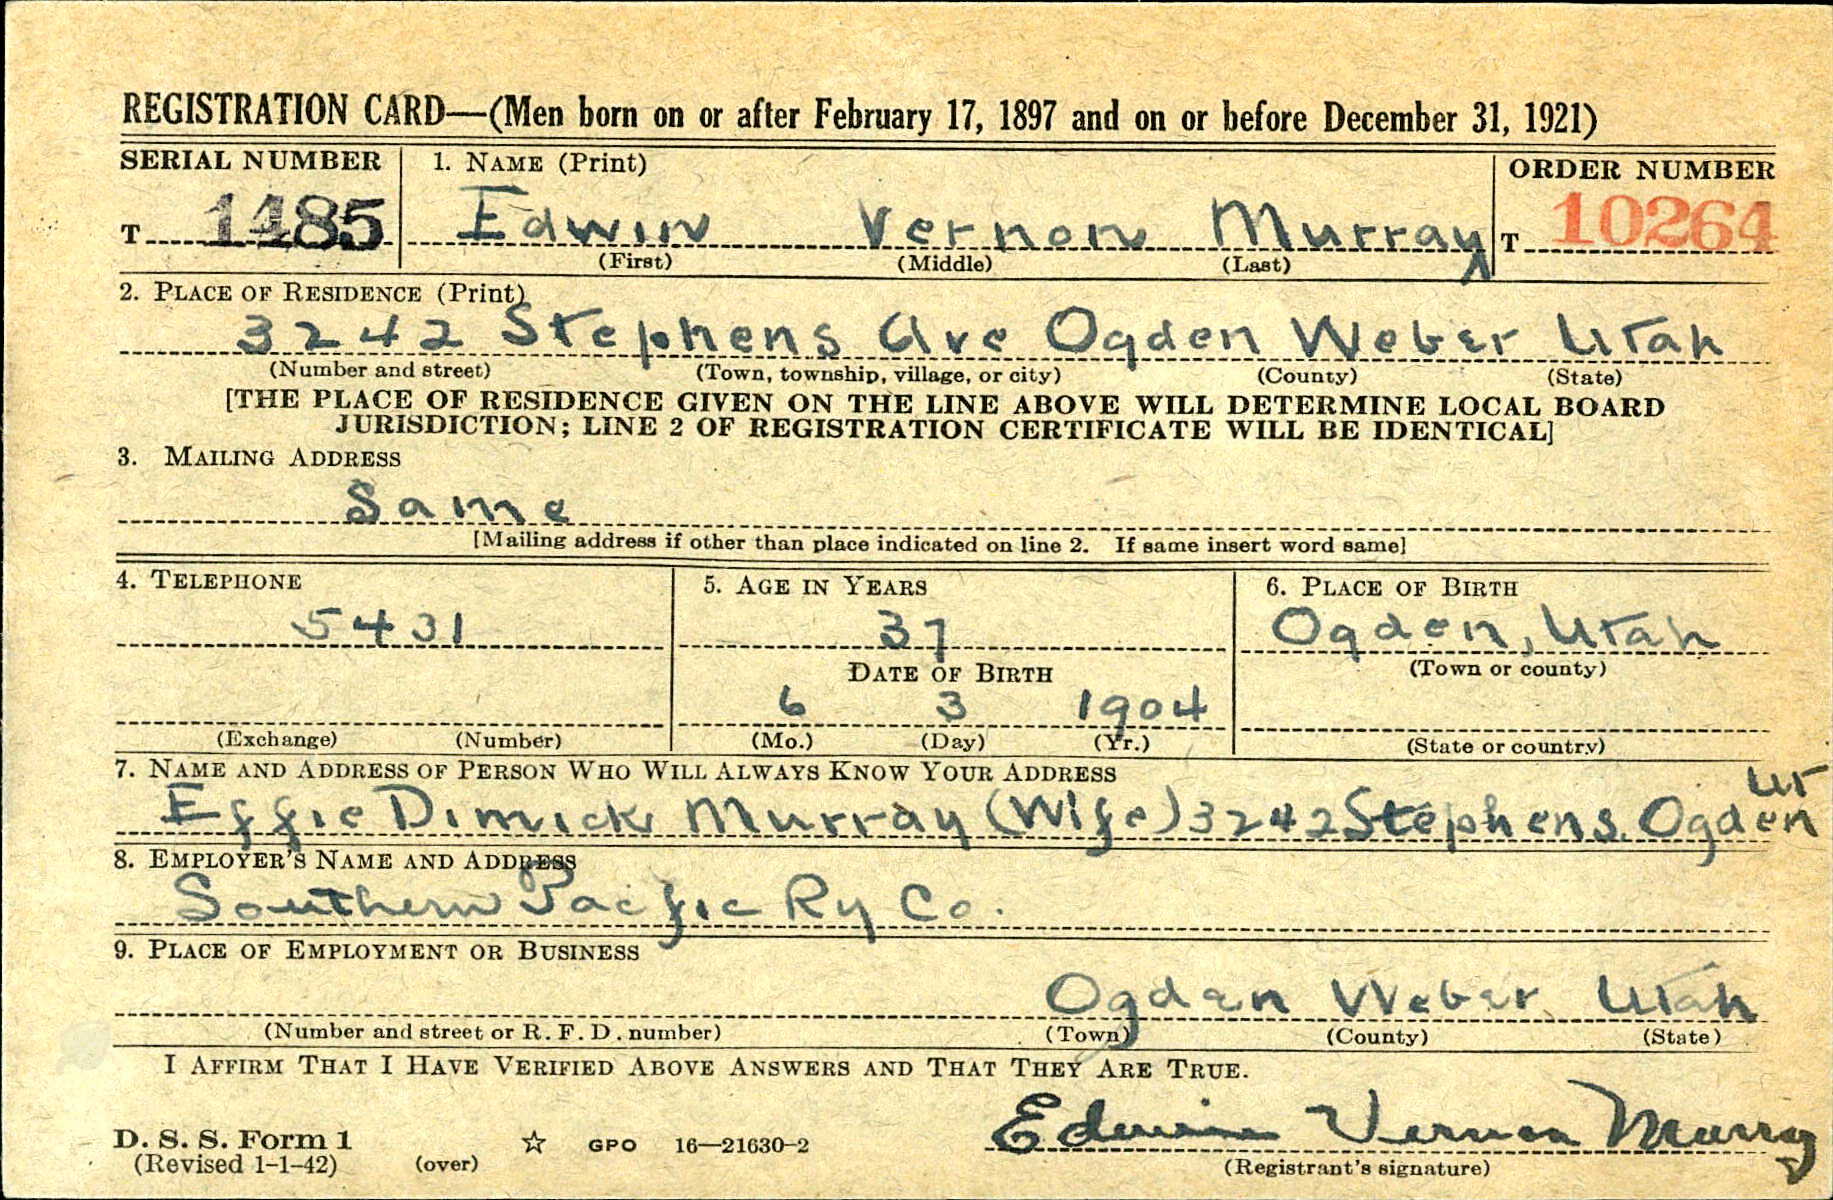 REGISTRATION CARD—(Men born on or after February 17, 1897 and on or before December 31, 1921)
SERIAL NUMBER 1. NAME (Print) ORDER NUMBER
T 1485 Edwin Vernon Murray T 10264
(First) (Middle) (Last)
2. PLACE OF RESIDENCE (Print)
3242 Stephens Ave Ogden Weber Utah
(Number and street) (Town, township, village, or city) (County) (State)
[THE PLACE OF RESIDENCE GIVEN ON THE LINE ABOVE WILL DETERMINE LOCAL BOARD
JURISDICTION; LINE 2 OF REGISTRATION CERTIFICATE WILL BE IDENTICAL]
3. MAILING ADDRESS
Same
[Mailing address if other than place indicated on line 2. If same insert word same]
4. TELEPHONE 5. AGE IN YEARS 6. PLACE OF BIRTH
5431 37 Ogden, Utah
DATE OF BIRTH (Town or county)
6 3 1904
(Exchange) (Number) (Mo.) (Day) (Yr.) (State or country)
7. NAME AND ADDRESS OF PERSON WHO WILL ALWAYS KNOW YOUR ADDRESS
Effie Dimick Murray (Wife) 3242 Stephens. Ogden Ut
8. EMPLOYER'S NAME AND ADDRESS
Southern Pacific Ry Co.
9. PLACE OF EMPLOYMENT OR BUSINESS
Ogden Weber Utah
(Number and street or R. F. D. number) (Town) (County) (State)
I AFFIRM THAT I HAVE VERIFIED ABOVE ANSWERS AND THAT THEY ARE TRUE.
Edwin Vernon Murray
D. S. S. Form 1
(Revised 1-1-42) (over) GPO 16—21630-2 (Registrant's signature)